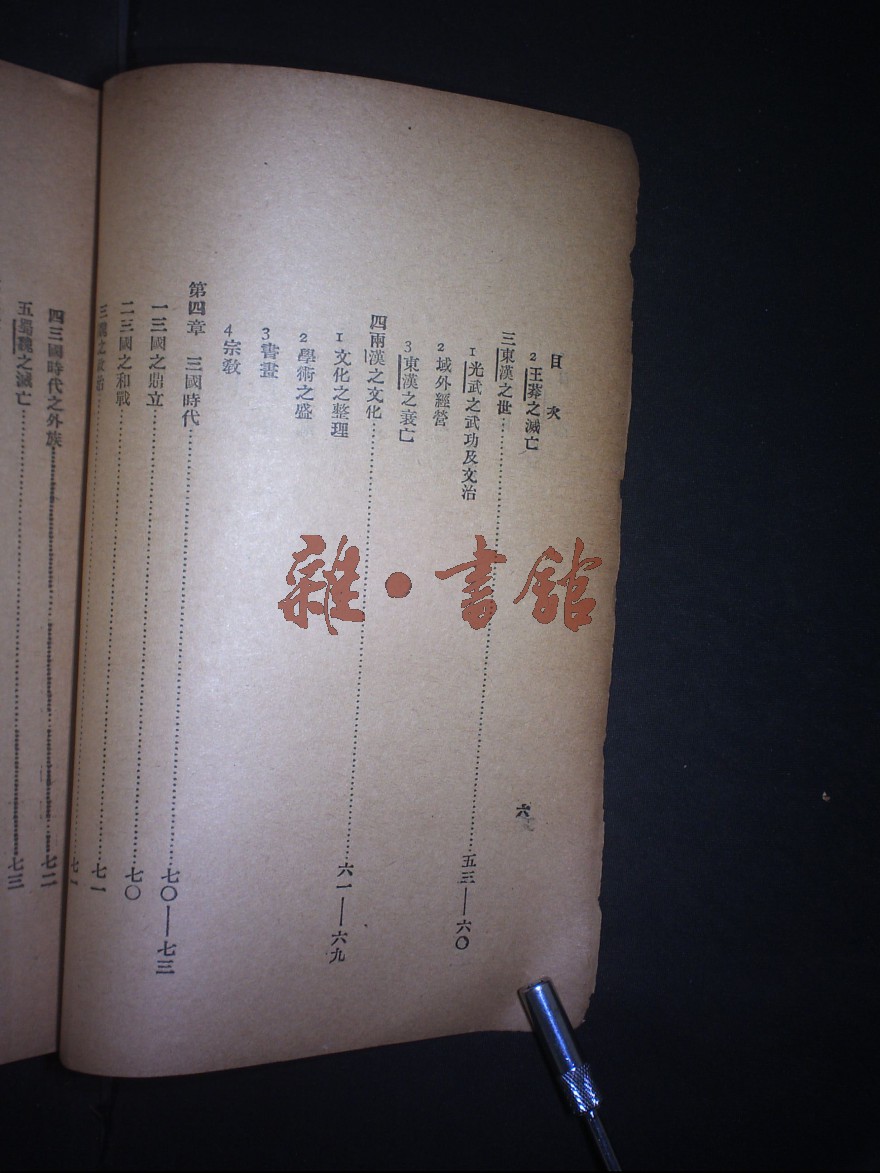 目次
2 王莽之滅亡
三 東漢之世……五三—六〇
1 光武之武功及文治
2 域外經營
3 東漢之衰亡
四 兩漢之文化……六一—六九
1 文化之整理
2 學術之盛
3 書畫
4 宗敎
第四章 三國時代……七〇—七三
一 三國之鼎立……七〇
二 三國之和戰……七一
三 魏之政治……七一
四 三國時代之外族……七二
五 蜀魏之滅亡……七三
六
雜·書館